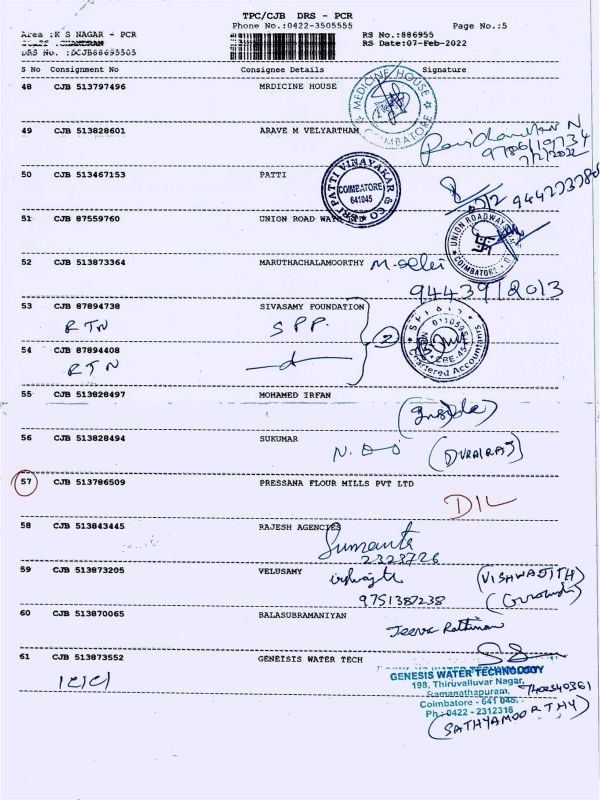 TPC/CJB DRS - PCR
Phone No.:0422-3505555 Page No.:5
Area :K S NAGAR - PCR RS No.:886955
STAFF :CHANDRAN RS Date:07-Feb-2022
DRS No. :DCJB88695505
S No Consignment No Consignee Details Signature
48 CJB 513797496 MRDICINE HOUSE
MEDICINE HOUSE COIMBATORE
49 CJB 513828601 ARAVE M VELYARTHAM
7/2/2022
50 CJB 513467153 PATTI
PATTI VINAYAKAR & CO
COIMBATORE
641045
51 CJB 87559760 UNION ROAD WAYS
UNION ROADWAY
COIMBATORE
52 CJB 513873364 MARUTHACHALAMOORTHY
53 CJB 87894738 SIVASAMY FOUNDATION
RTN SPP.
2
Chartered Accountants
54 CJB 87894408
RTN
55 CJB 513828497 MOHAMED IRFAN
(Inside)
56 CJB 513828494 SUKUMAR
(DURAIRAJ)
57 CJB 513786509 PRESSANA FLOUR MILLS PVT LTD
DIL
58 CJB 513843445 RAJESH AGENCIES
2323726
59 CJB 513873205 VELUSAMY
(VISHWAJITH)
9751387238
60 CJB 513870065 BALASUBRAMANIYAN
61 CJB 513873552 GENEISIS WATER TECH
GENESIS WATER TECHNOLOGY
198, Thiruvalluvar Nagar,
Ramanathapuram,
Coimbatore - 641 045.
Ph: 0422 - 2312318
(SATHYAMOORTHY)